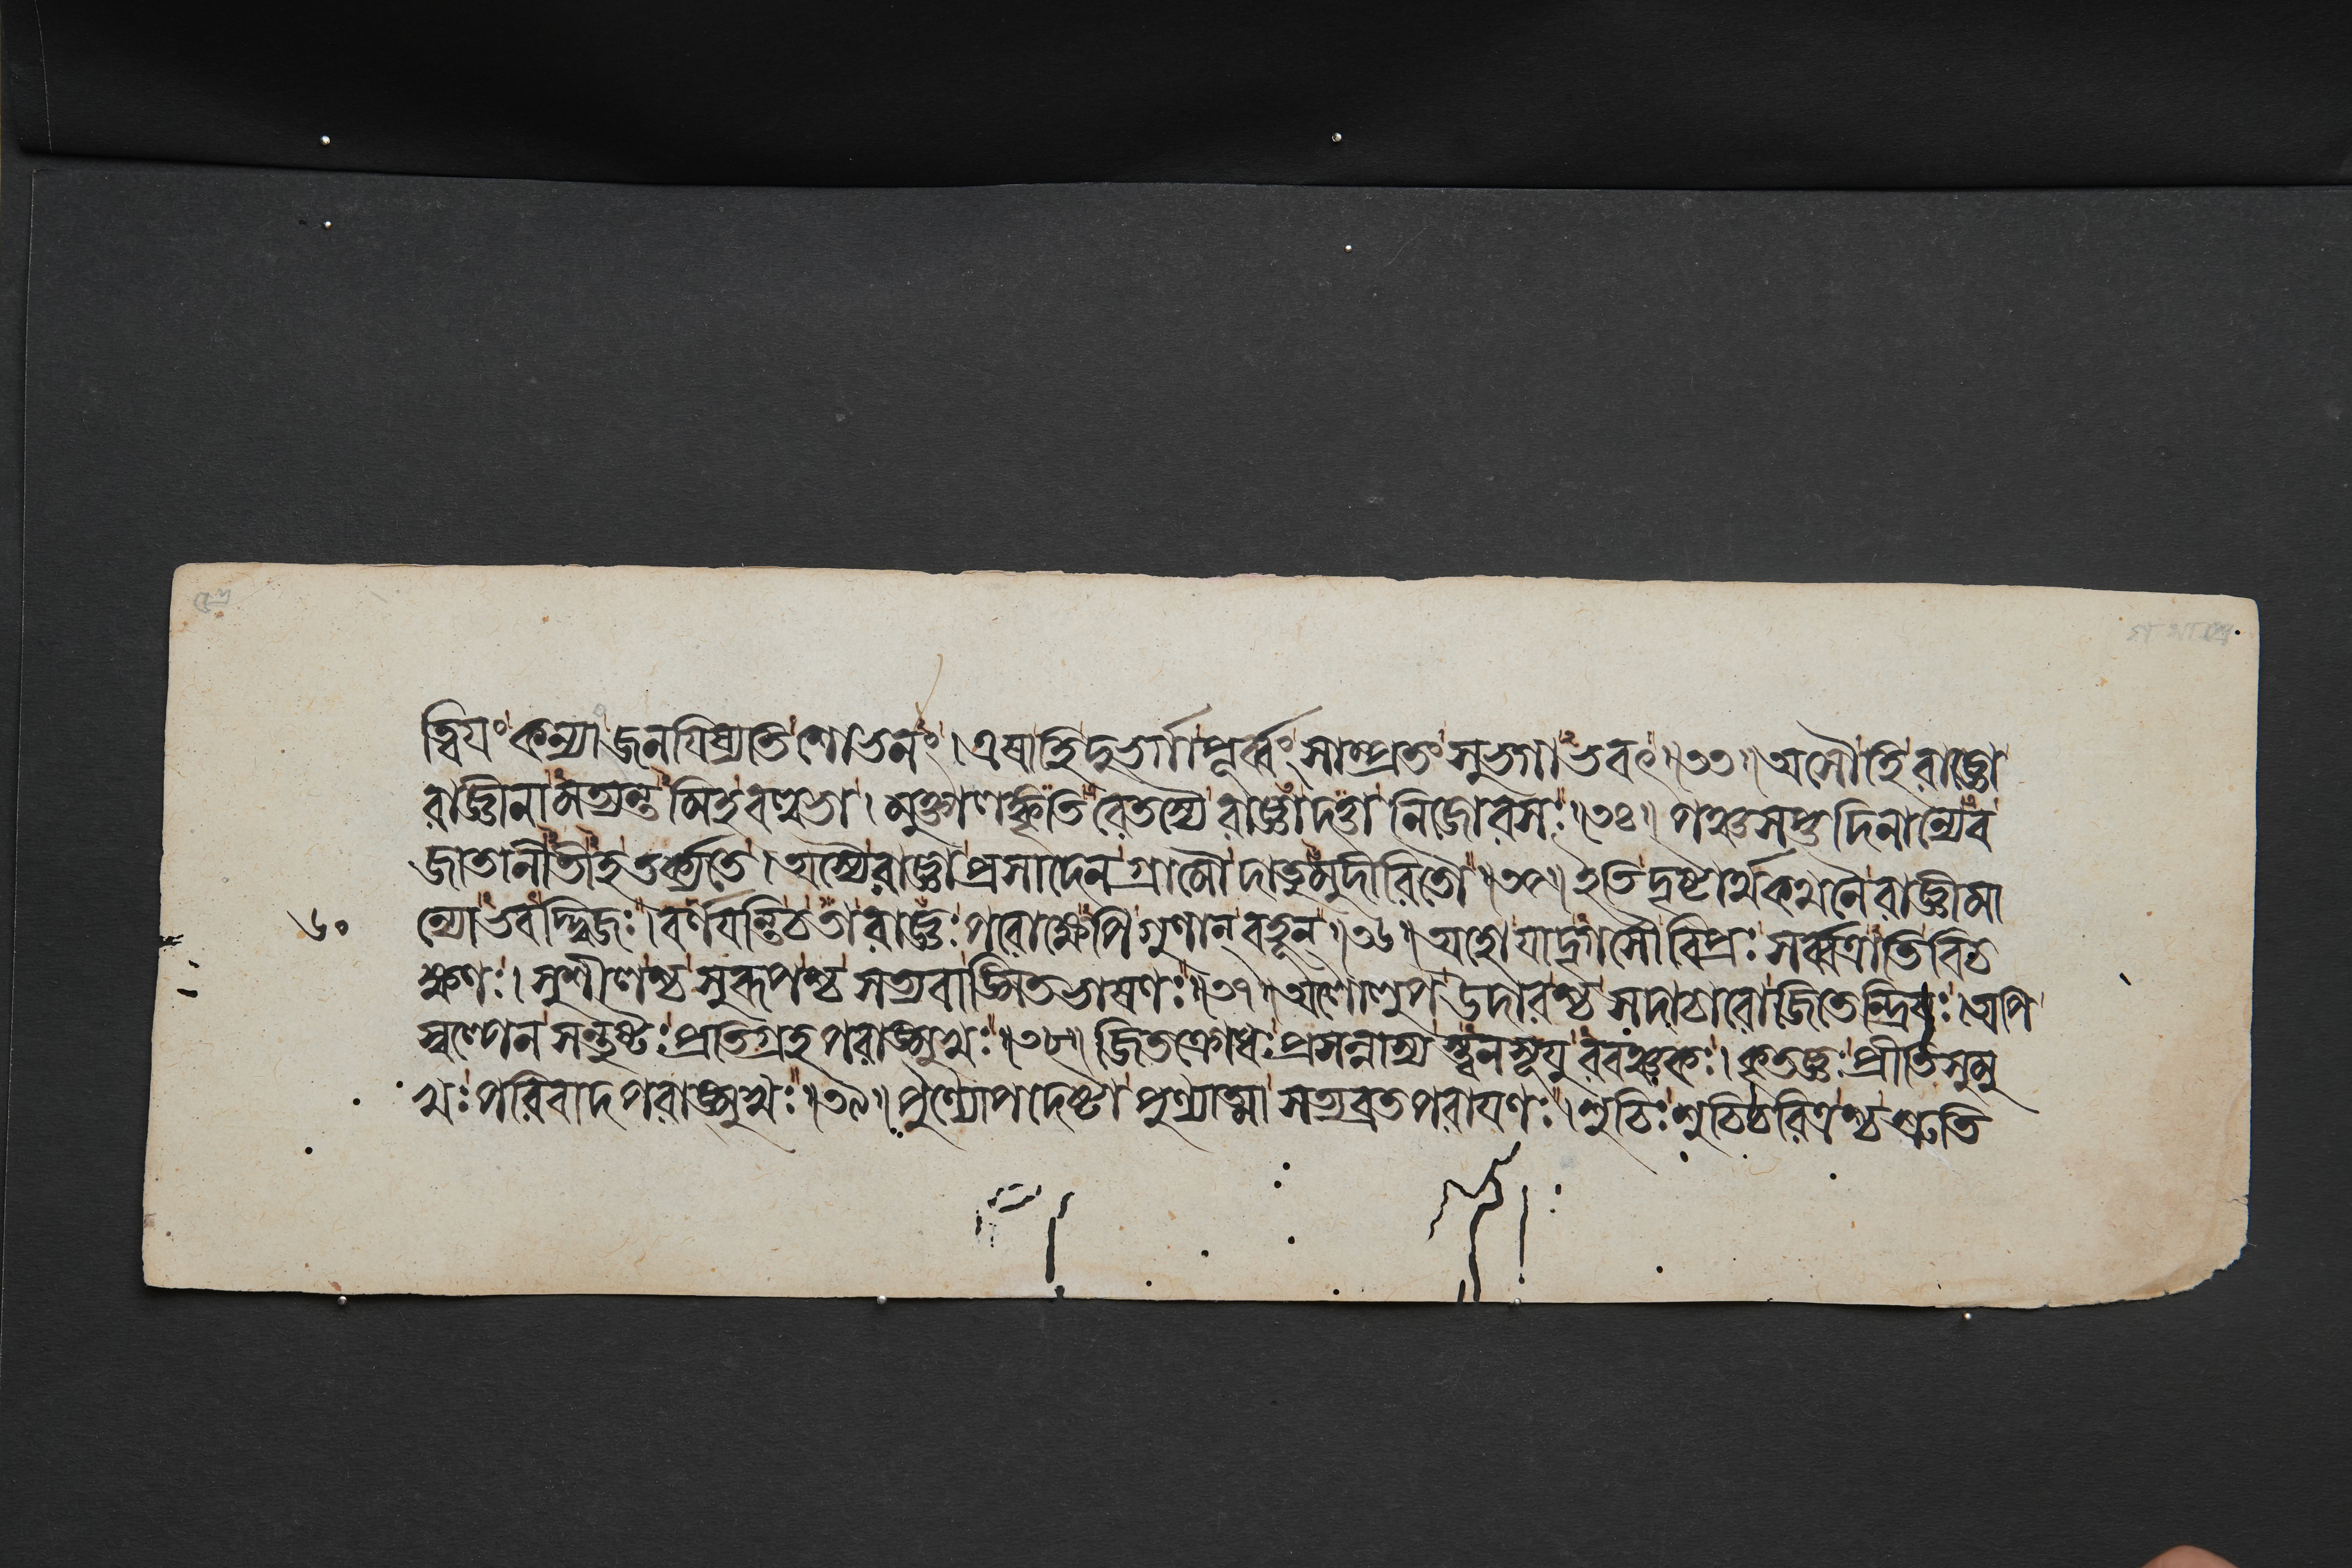 ত্বিযং কন্যা জনযিষ্যতি শোভনং । এষা হি দুর্ভগা পূর্ব্বং সাম্প্রতং সুভগা ভবৎ ॥৩৩॥ অসৌ হি রাজ্ঞো
রাজ্ঞীনামত্যন্তমিহ বল্লভা । মুক্তালঙ্কৃতিরেতস্যৈ রাজ্ঞা দত্তা নিজোরসঃ ॥৩৪॥ পঞ্চসপ্তদিনান্যেব
জাতানীতীহ তর্ক্যতে । অস্যৈ রাজ্ঞা প্রসাদেন গ্রামৌ দাতুমুদীরিতৌ ॥৩৫॥ ইতি দৃষ্টার্থকথনৈ রাজ্ঞীমা
৬০ ন্যো ভবদ্দ্বিজঃ । বর্ণযন্তি চ তা রাজ্ঞঃ পরোক্ষেপি গুণান্ বহূন্ ॥৩৬॥ অহো যাদৃগসৌ বিপ্রঃ সর্ব্বত্রাতিবিচ
ক্ষণঃ । সুশীলশ্চ সুরূপশ্চ সত্যবাঙ্মিতভাষণঃ ॥৩৭॥ অলোলুপ উদারশ্চ সদাচারো জিতেন্দ্রিযঃ । অপি
স্বল্পেন সন্তুষ্টঃ প্রতিগ্রহপরাঙ্মুখঃ ॥৩৮॥ জিতক্রোধঃ প্রসন্নাস্য স্ত্বনসূযুরবঞ্চকঃ । কৃতজ্ঞঃ প্রীতিসুমু
খঃ পরিবাদপরাঙ্মুখঃ ॥৩৯॥ পুণ্যোপদেষ্টা পুণ্যাত্মা সত্যব্রতপরাযণঃ । শুচিঃ শুচিচরিত্রশ্চ শ্রুতি